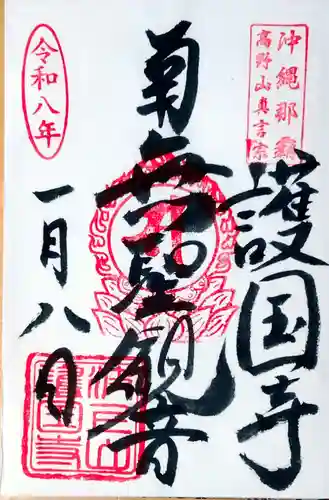 沖縄那覇
高野山真言宗
護国寺
聖観音
令和八年
一月八日